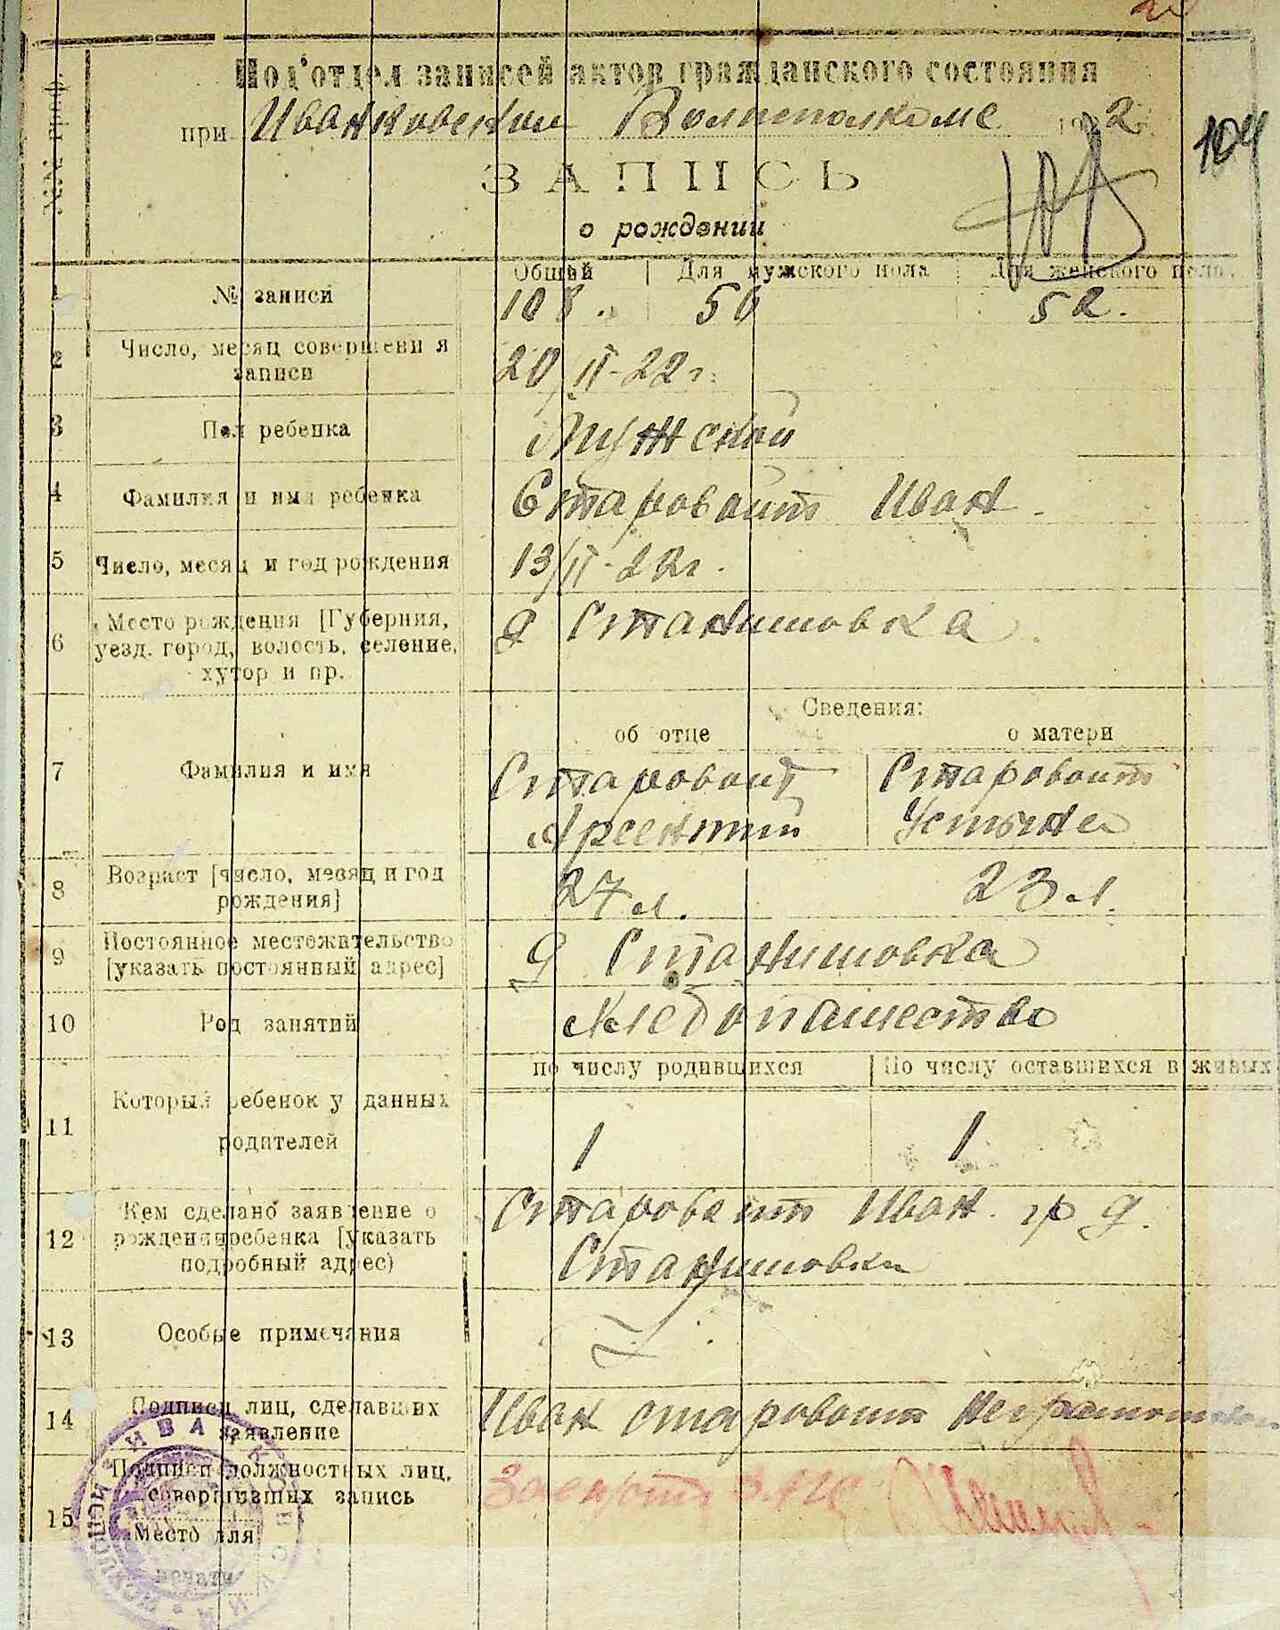 Под'отдел записей актов гражданского состояния
при Иванковском Волисполкоме 1922
104
ЗАПИСЬ
о рождении
№№ граф.
Общий | Для мужского пола | Для женского пола.
1 № записи 108. 56 52.
2 Число, месяц совершени я
записи
20/II-22г.
3 Пол ребенка Мужской
4 Фамилия и имя ребенка Старовойт Иван
5 Число, месяц и год рождения 13/II-22г.
6 Место рождения [Губерния,
уезд. город, волость, селение,
хутор и пр.
д Станишовка
Сведения:
об отце о матери
7 Фамилия и имя
Старовойт Старовоит
Арсентий Устына
8 Возраст [число, месяц и год
рождения]
27 л. 23 л.
9 Постоянное местожительство
[указать постоянный адрес]
д Станишовка
10 Род занятий Хлебопашество
по числу родившихся | По числу оставшихся в живых
11 Который ребенок у данных
родителей
1 1
12 Кем сделано заявление о
рождении ребенка [указать
подробный адрес)
Старовоит Иван гр д.
Станишовки
13 Особые примечания
14 Подписи лиц, сделавших
заявление
Иван старовоит неграмотный
15 Подписи должностных лиц,
совершивших запись
Место для
печати